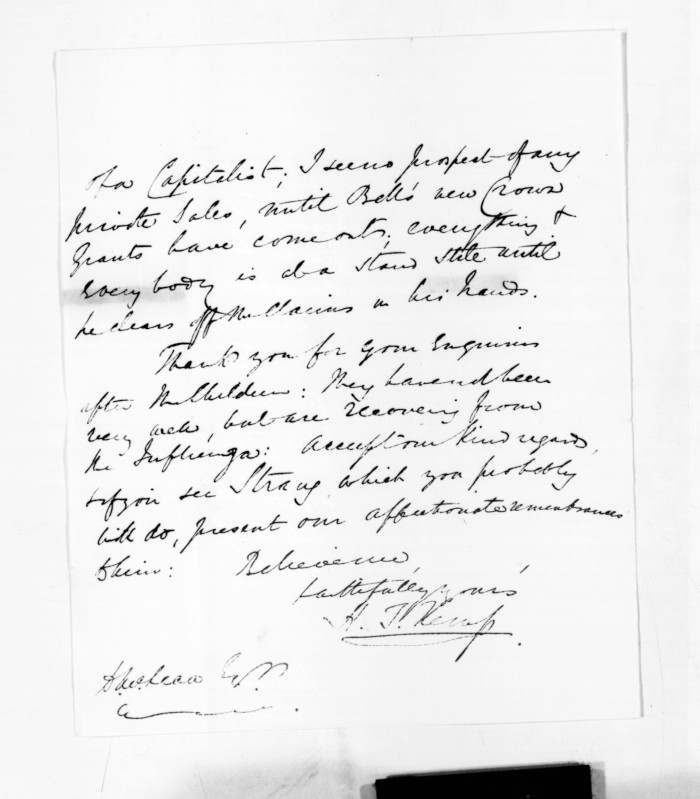 of a Capitalist; I see no prospect of any
private Sales, until Bell's new Crown
Grants have come out; everything &
everybody is at a stand still until
he clears off the Claims in his hands.
Thank you for your Enquiries
after the Children: they have not been
very well, but are recovering from
the Influenza: accept our kind regards,
& if you see Strang, which you probably
will do, present our affectionate remembrances
to him: Believe me,
faithfully yours,
H. T. Kemp.
D. McLean Esqr.